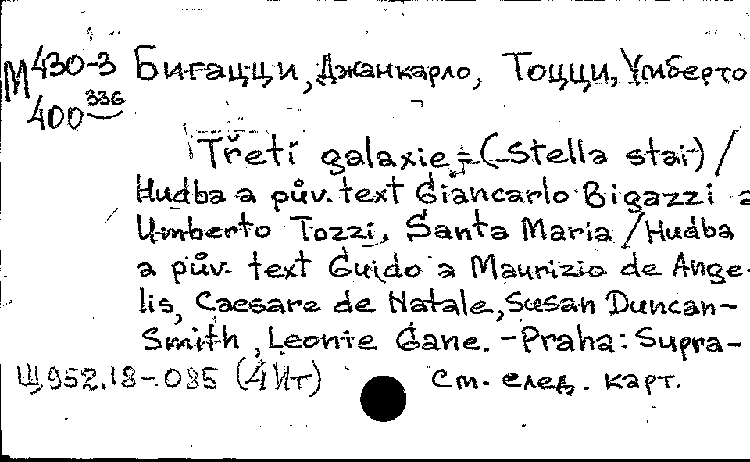 М 430-3 Бигацци, Джанкарло, Тоцци, Умберто
400 336
Třetí galaxie = (Stella stai) /
Hudba a pův. text Giancarlo Bigazzi a
Umberto Tozzi, Santa Maria / Hudba
a pův. text Guido a Maurizio de Ange-
lis, Caesare de Natale, Susan Duncan-
Smith, Leonie Gane. - Praha: Supra-
Щ952.18-.085 (4Ит) См. след. карт.